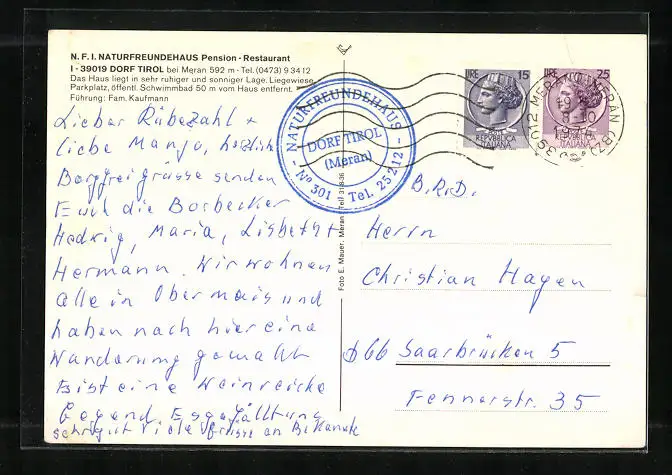 N.F.I. NATURFREUNDEHAUS Pension - Restaurant
I - 39019 DORF TIROL bei Meran 592 m - Tel. (0473) 9 34 12
Das Haus liegt in sehr ruhiger und sonniger Lage. Liegewiese
Parkplatz, öffentl. Schwimmbad 50 m vom Haus entfernt.
Führung: Fam. Kaufmann
Lieber Rübezahl +
liebe Manja, herzlich
Bergfreigrüsse senden
Euch die Borbecker
Hedwig, Maria, Lisbeth +
Hermann. Wir wohnen
alle in Obermais und
haben nach hier eine
Wanderung gemacht
Es ist eine Weinreiche
Gegend. Es gefällt uns
sehr gut Viele Grüsse an Bekannte
NATURFREUNDEHAUS
DORF TIROL
(Meran)
Nº 301 - Tel. 25212
Foto E. Mauer, Meran
LIRE 15
POSTE
REPVBBLICA
ITALIANA
LIRE 25
REPVBBLICA
ITALIANA
39012 MERANO MERAN (BZ)
B.R.D.
Herrn
Christian Hagen
66 Saarbrücken 5
Fennerstr. 35